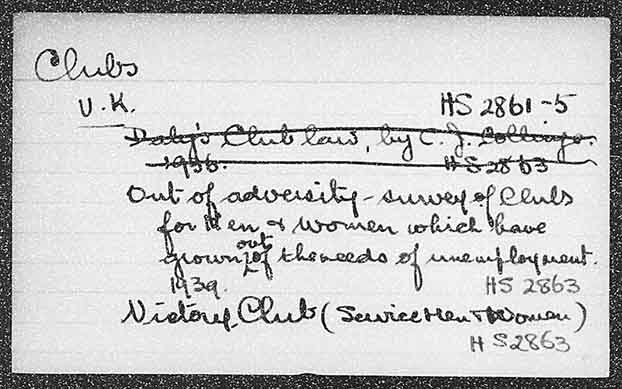 Clubs
U.K. HS 2861-5
Daly's Club law, by C. J. Collinge.
1936. HS 2863
Out of adversity - survey of Clubs
for Men & Women which have
grown out of the needs of unemployment.
1939. HS 2863
Victory Club (Service Men & Women)
HS2863